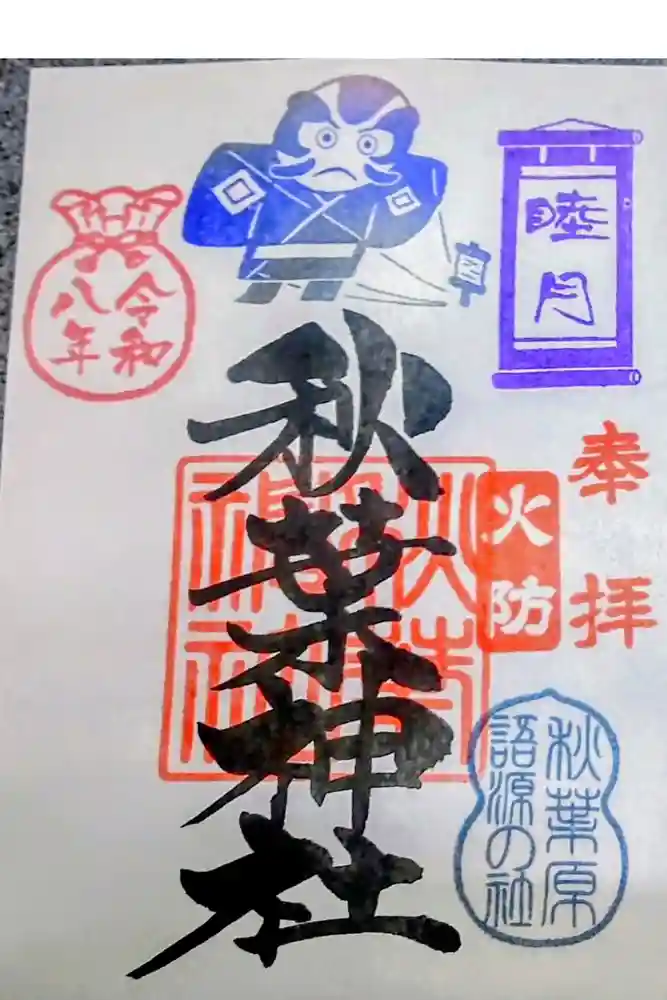 奉拝
睦月
火防
秋葉原
語源の社
秋葉神社
令和
八年